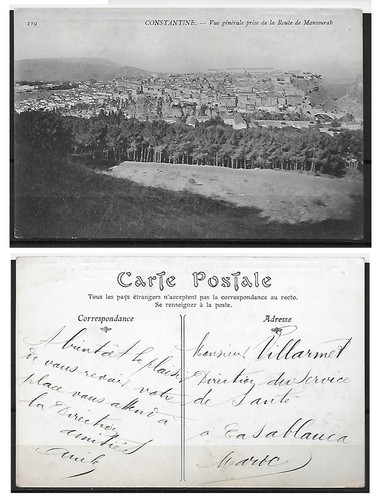 119
CONSTANTINE. — Vue générale prise de la Route de Mansourah
Carte Postale
Tous les pays étrangers n'acceptent pas la correspondance au recto.
Se renseigner à la poste.
Correspondance
A bientôt le plaisir
de vous revoir, votre
place vous attend à
la Direction
amitiés
Adresse
Monsieur Villarmet
Direction du Service
de Santé
à Casablanca
Maroc